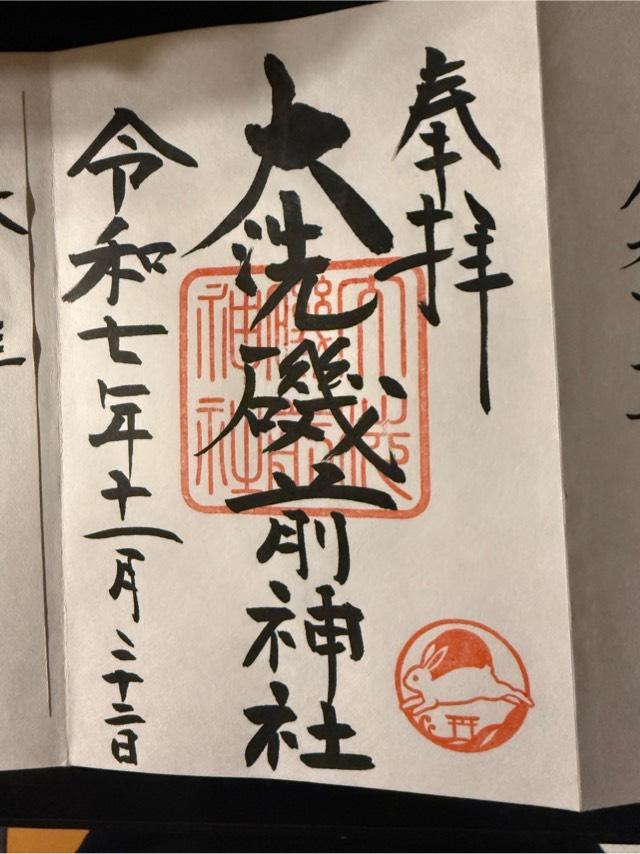 奉拝
大洗磯前神社
令和七年十一月二十二日